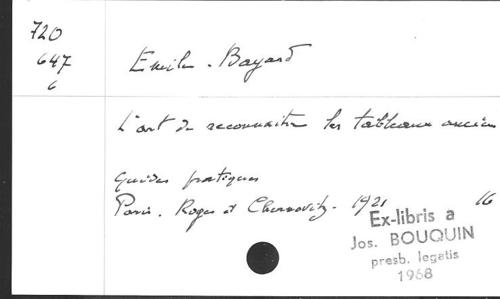 720
647
6
Emile. Bayard
L'art de reconnaitre les tableaux anciens
Guides pratiques
Paris. Roger et Chernoviz. 1921 16
Ex-libris a
Jos. BOUQUIN
presb. legatis
1968